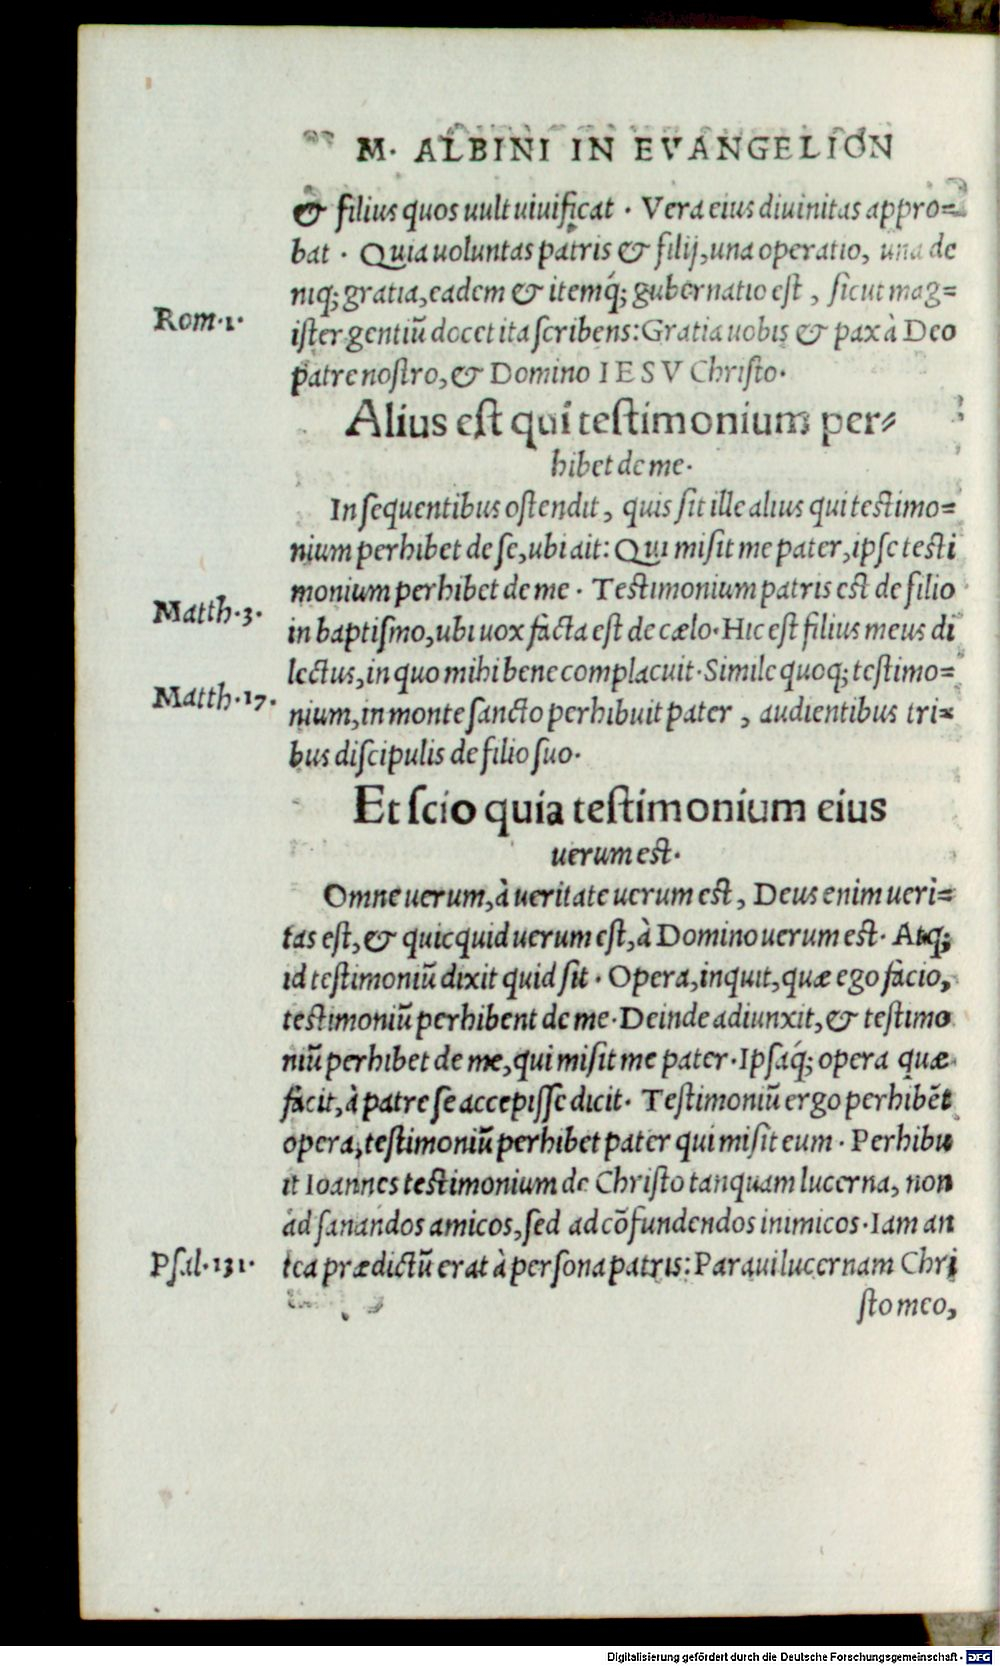 M. ALBINI IN EVANGELION
& filius quos uult uiuificat. Vera eius diuinitas appro=
bat. Quia uoluntas patris & filij, una operatio, una de
niq; gratia, eadem & itemq́; gubernatio est, sicut mag=
Rom.1.
ister gentiũ docet ita scribens: Gratia uobis & pax à Deo
patre nostro, & Domino IESV Christo.
Alius est qui testimonium per=
hibet de me.
In sequentibus ostendit, quis sit ille alius qui testimo=
nium perhibet de se, ubi ait: Qui misit me pater, ipse testi
monium perhibet de me. Testimonium patris est de filio
Matth.3.
in baptismo, ubi uox facta est de cælo. Hic est filius meus di
lectus, in quo mihi bene complacuit. Simile quoq; testimo=
Matth.17.
nium, in monte sancto perhibuit pater, audientibus tri=
bus discipulis de filio suo.
Et scio quia testimonium eius
uerum est.
Omne uerum, à ueritate uerum est, Deus enim ueri=
tas est, & quicquid uerum est, à Domino uerum est. Atq;
id testimoniũ dixit quid sit. Opera, inquit, quæ ego facio,
testimoniũ perhibent de me. Deinde adiunxit, & testimo
niũ perhibet de me, qui misit me pater. Ipsaq́; opera quæ
facit, à patre se accepisse dicit. Testimoniũ ergo perhibẽt
opera, testimoniũ perhibet pater qui misit eum. Perhibu
it Ioannes testimonium de Christo tanquam lucerna, non
ad sanandos amicos, sed ad cõfundendos inimicos. Iam an
Psal.131.
tea prædictũ erat à persona patris: Paraui lucernam Chri
sto meo,
Digitalisierung gefördert durch die Deutsche Forschungsgemeinschaft - DFG